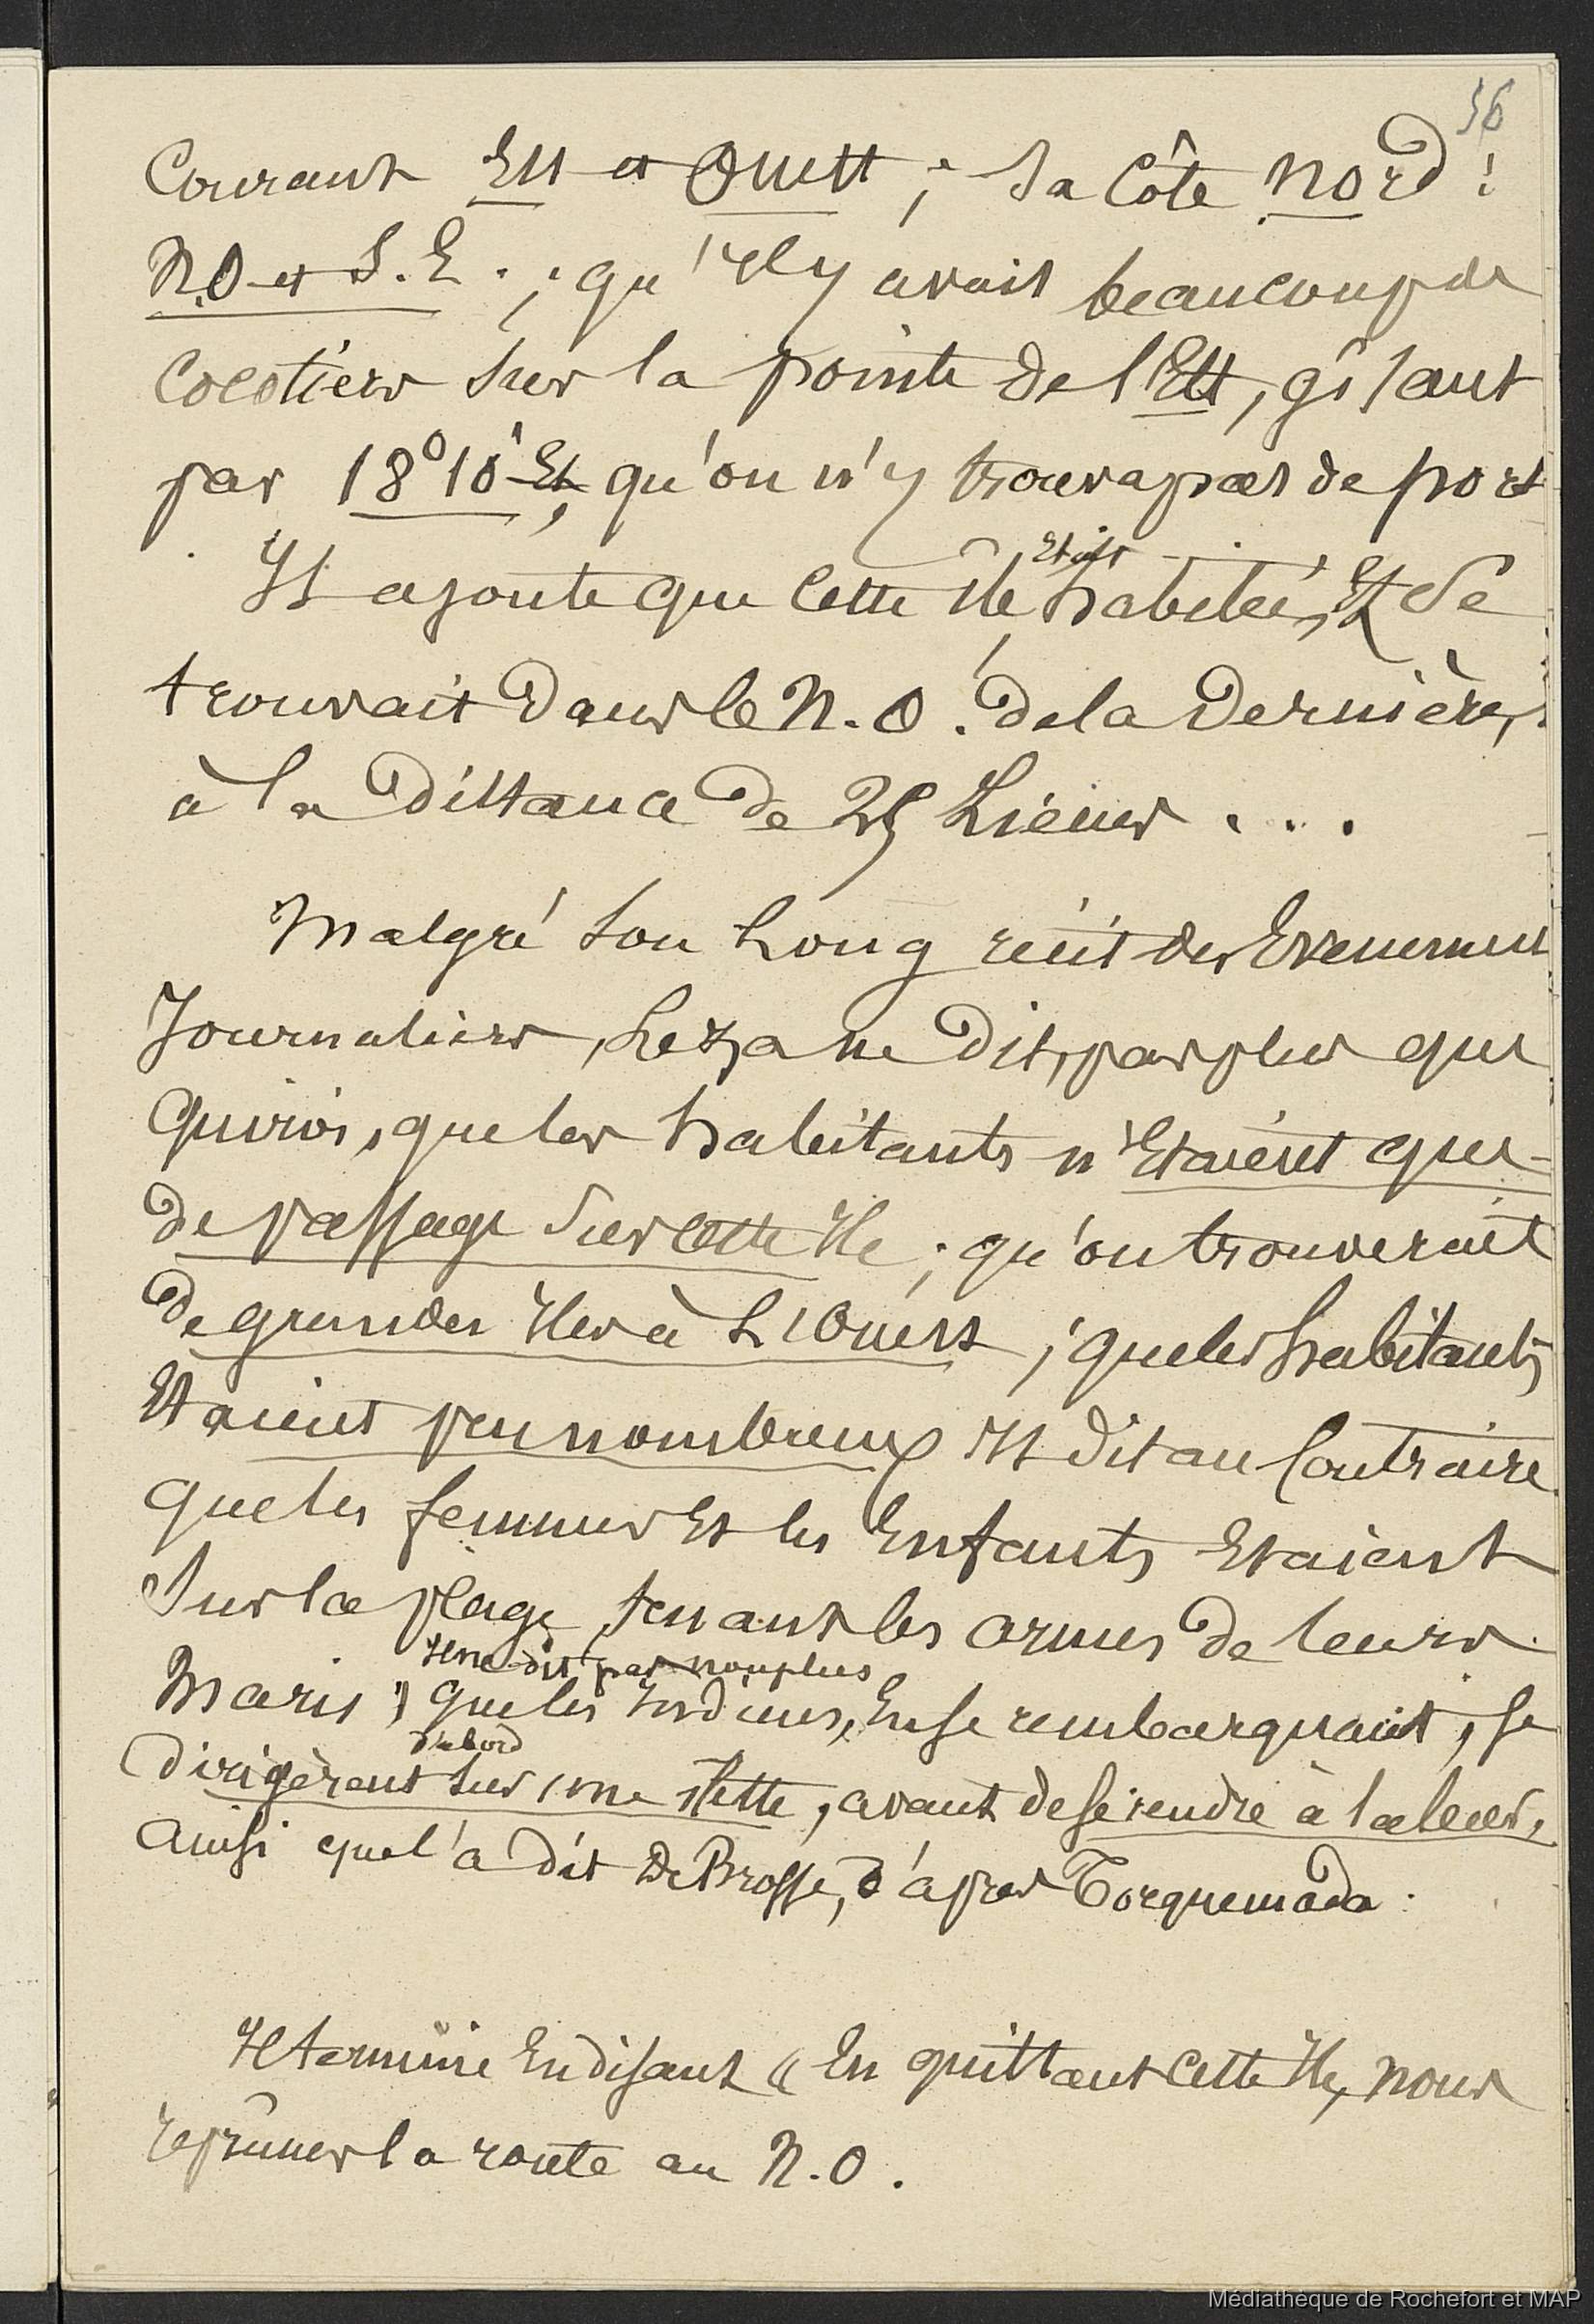 36
Courant Est et Ouest ; sa Côte nord :
N.O et S.E. ; qu'Il y avait beaucoup de
Cocotiers sur la pointe de l'Est, gisant
par 18° 10' Et, qu'on n'y trouva pas de port
Il ajoute que cette île Etait habitée, Et Se
trouvait Dans le N.O. de la Dernière,
à la Distance de 25 Lieues . . .
Malgré son Long récit des Evenements
Journaliers, Leza ne dit, pas plus que
Quiros, que les habitants n'Etaient que
de passage sur cette Ile ; qu'on trouverait
de grandes Iles à L'Ouest ; que les habitants
Etaient peu nombreux Il dit au Contraire
que les femmes Et les Enfants Etaient
Sur la plage, tenant les armes de leurs
Il ne dit pas non plus
Maris ; que les Indiens, En se rembarquant, se
d'abord
Dirigèrent sur une Ilette, avant de se rendre à la leur,
Ainsi que l'a dit De Brosse, d'après Torquemada.
Il termine En disant « En quittant cette Ile, nous
reprîmes la route au N.O.
Médiathèque de Rochefort et MAP